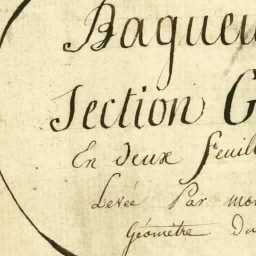 Bagneu
Section G
En deux feuill
Levée Par mo
Géomètre Du